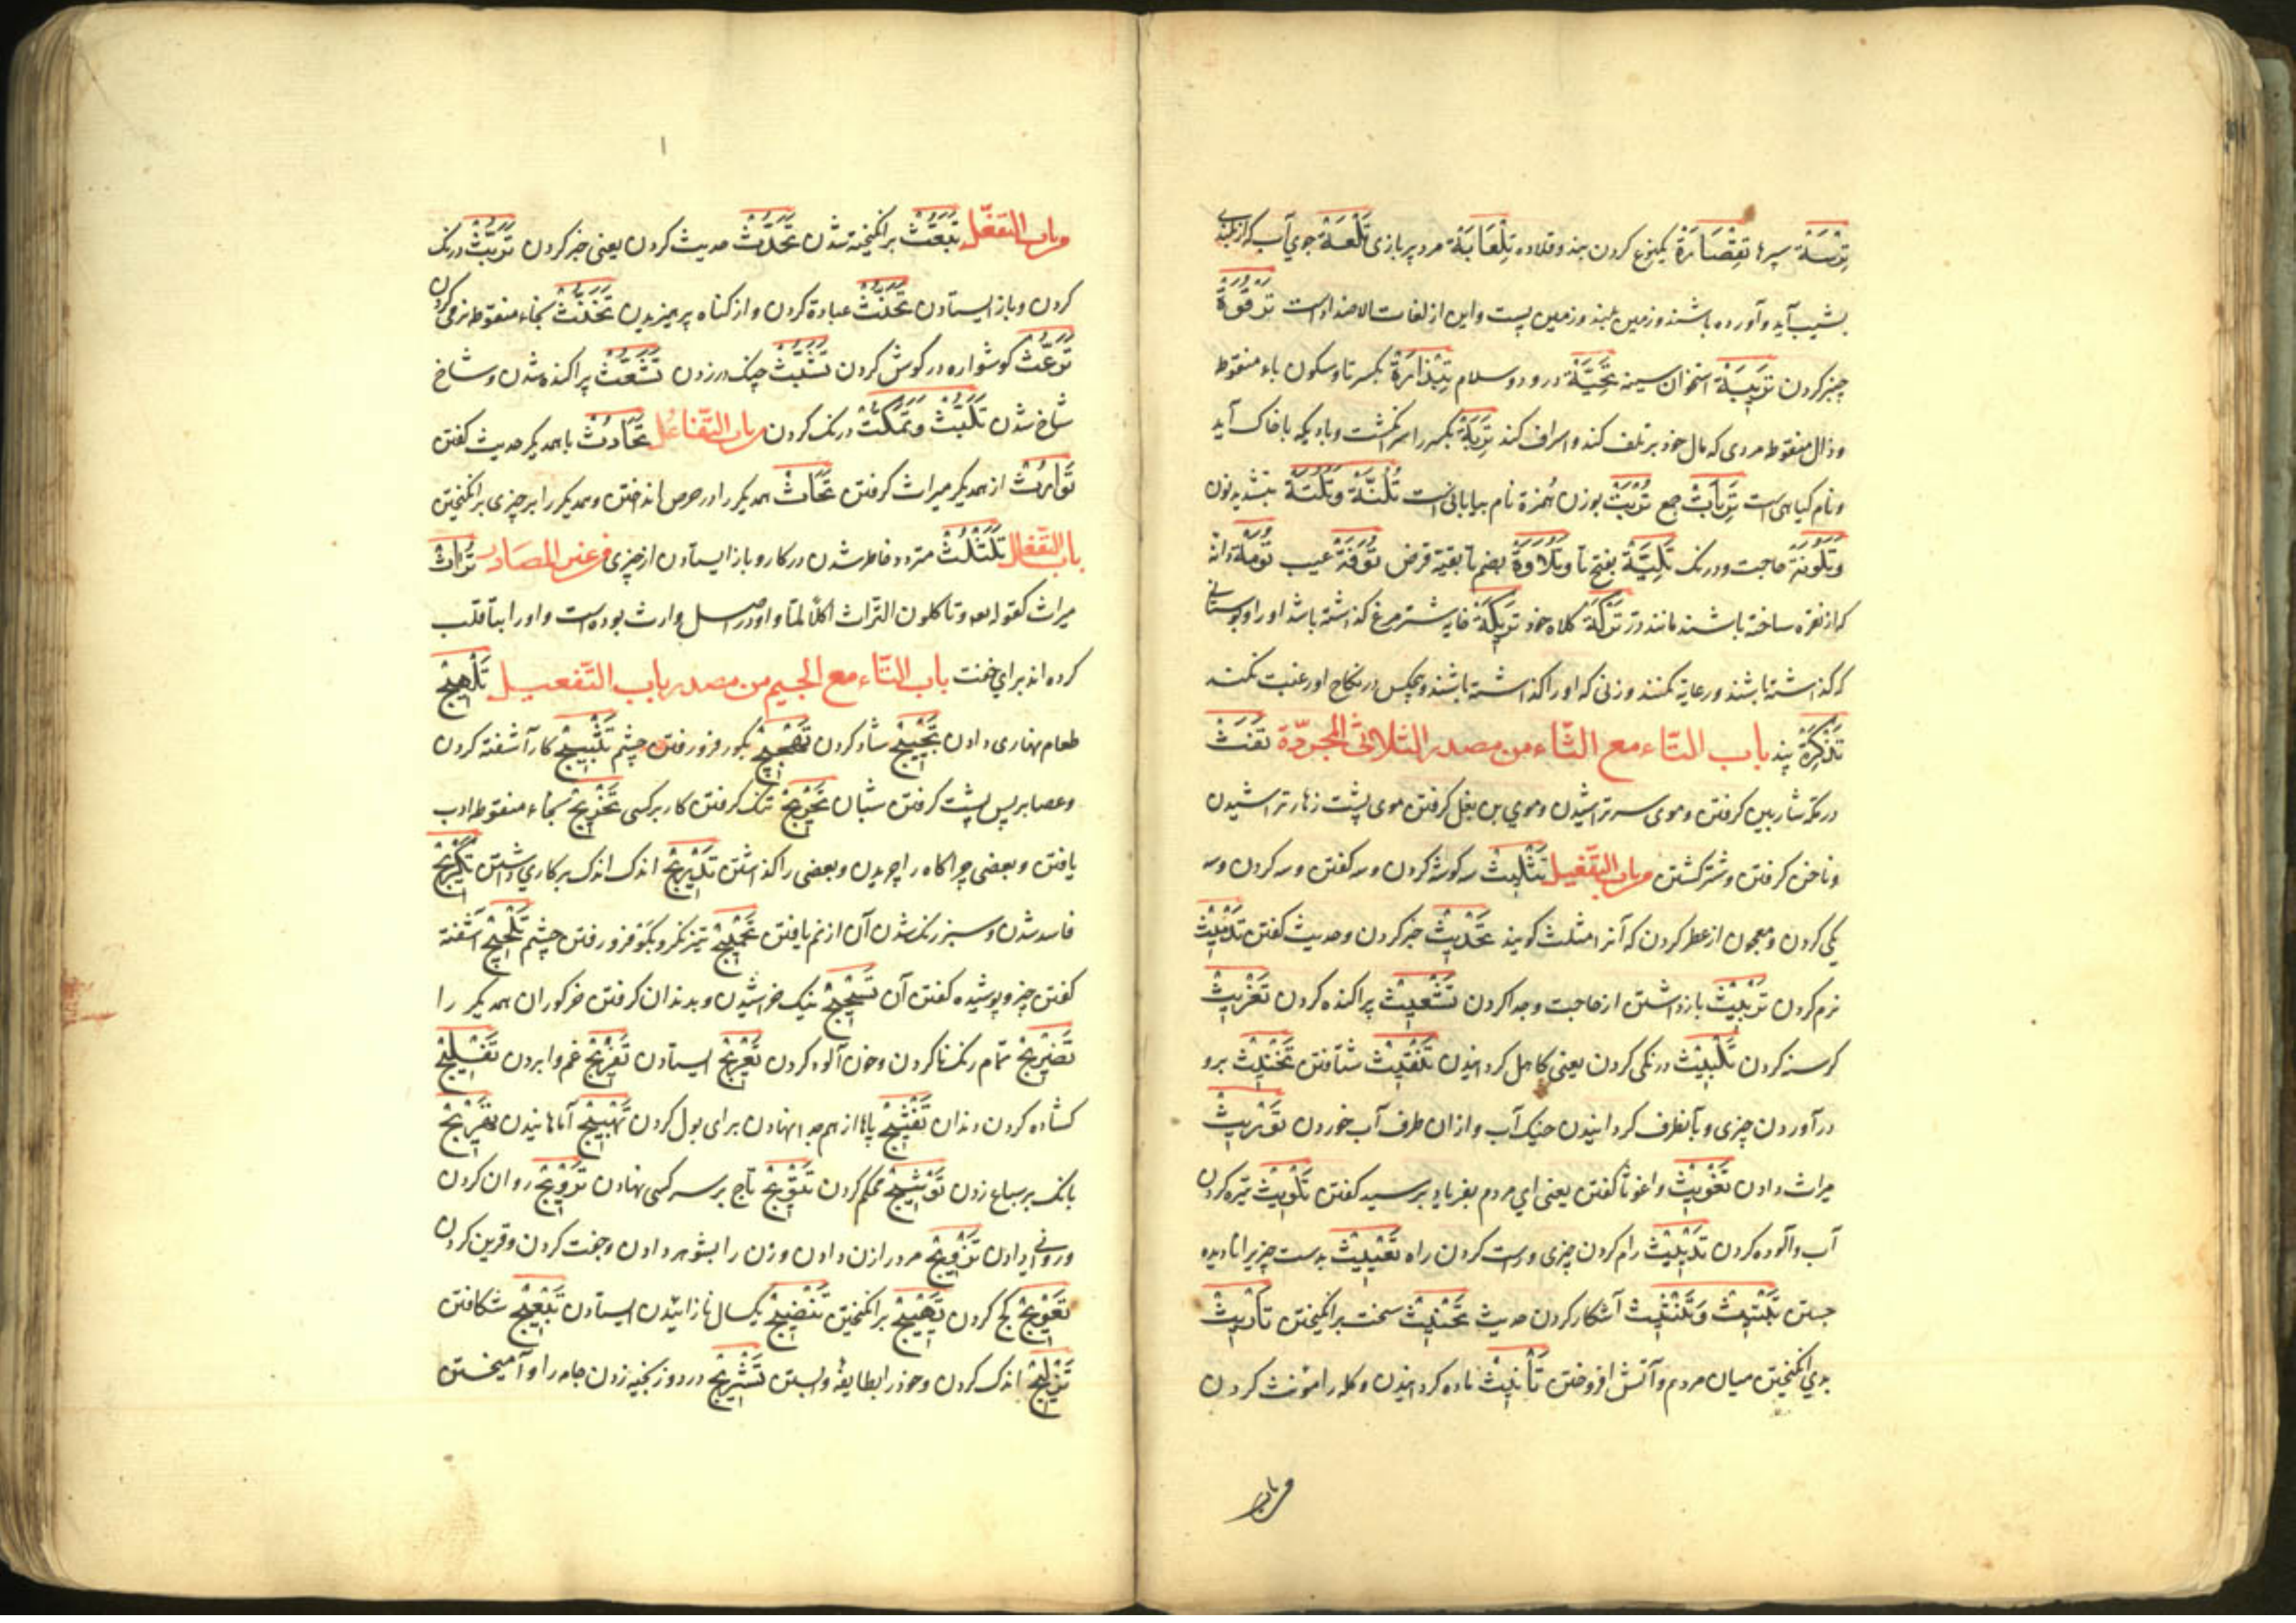 تِرَسَة سپرها تِقْصَارَة یکنوع کردن بند و قلاده تِلِعَّابَة مرد پر بازی تَلْعَة جوی آب که از بلندی
بشیب آید و آورده باشند و زمین بلند و زمین پست و این از لغات الاضداد است تَرْقُوَة
چنبر کردن تَرِیبَة استخوان سینه تَحِیَّة درود و سلام تِبْذَارَة بکسر تا و سکون باء منقوط
و ذال منقوط مردی که مال خود بر تلف کند و اسراف کند تَرِبَة بکسر را سر انکشت و بادیکه با خاک آید
و نام کیاهی است تَرِبَاتْ جمع تُرَبَة بوزن هُمَزة نام بیابانی است تُلُنَّة وَتَلُنَّة بتشدید نون
وَتَلُونَة حاجت و درنک تَلِیَّة بفتح تا وَتُلَاوَة بضم تا بقیة قرض تُوَفَة عیب تُومَة دانه
که از نقره ساخته باشند مانند در تَرْكَة کلاه خود تَرِیکَة خایه شترمرغ که گذاشته باشد او را و بوستانی
که گذاشته باشند و رعایة نکنند و زنی که او را گذاشته باشند و هیچکس در نکاح او رغبت نکند
تَذْكِرَة پند باب التّاء مع الثّاء من مصدر الثلاثی المجرّدة تَفَثْ
در مکة شارب کرفتن و موی سر تراشیدن و موی بن بغل کرفتن موی پشت زهار تراشیدن
و ناخن کرفتن و شتر کشتن و باب التّفعیل تَثْلِیثْ سه کوشه کردن و سه کفتن و سه کردن و سه
یکی کردن و معجون از عطر کردن که آنرا مثلث کویند تَحْدِیثْ خبر کردن و حدیث کفتن تَدْمِیثْ
نرم کردن تَرْبِیثْ بازداشتن از حاجت و جدا کردن تَشْعِیثْ پراکنده کردن تَغْرِیثْ
کرسنه کردن تَلْبِیثْ درنکی کردن یعنی کاهل کردانیدن تَلْقِیثْ شتافتن تَخْنِیثْ برو
درآوردن چیزی و باطرف کردانیدن خیک آب و ازان طرف آب خوردن تَوْرِیثْ
میراث دادن تَغْوِیثْ واغوثا کفتن یعنی ای مردم بفریاد برسید کفتن تَلْوِیثْ تیره کردن
آب و آلوده کردن تَدْیِیثْ رام کردن چیزی و راست کردن راه تَعْیِیثْ بدست چیزیرا نادیده
جستن آشکار کردن حدیث تَحْثِیثْ سخت برانکیختن تَأْرِیثْ
بدی انکیختن میان مردم و آتش افروختن تَأْنِیثْ ماده کردانیدن و کلمه را مؤنث کردن
و باب
و باب التّفعّل تَبَعُّثْ برانکیخته شدن تَحَدُّثْ حدیث کردن یعنی خبر کردن تَرَبُّثْ درنک
کردن و باز ایستادن تَحَنُّثْ عبادة کردن و از کناه پرهیزیدن تَخَنُّثْ بخاء منقوطه نرمی کردن
تَرَعُّثْ کوشواره در کوش کردن تَشَبُّثْ چنک در زدن تَشَعُّثْ پراکنده شدن و شاخ
شاخ شدن تَلَبُّثْ وَتَمَكُّثْ درنک کردن و باب التّفاعل تَحَادُثْ با همدیکر حدیث کفتن
تَوَارُثْ از همدیکر میراث کرفتن تَحَاثّْ همدیکر را در حرص انداختن و همدیکر را بر چیزی برانکیختن
باب التّفعلل تَلَثْلُثْ متردد خاطر شدن در کار و باز ایستادن از چیزی و غیر المصادر تُرَاثْ
میراث کقوله تعالی و تاکلون التراث اکلا لمّا و او در اصل وراث بوده است و او را بتا قلب
کرده اند برای خفت باب التّاء مع الجیم من مصدر باب التّفعیل تَلْهِیجْ
طعام نهاری دادن تَبْهِیجْ شاد کردن تَهْجِیجْ بکو فرو رفتن چشم تَثْبِیجْ کار آشفته کردن
و عصا بر پس پشت کرفتن شبان تَحْرِیجْ تنک کرفتن کار بر کسی تَخْرِیجْ بخاء منقوطه ادب
یافتن و بعضی چراکاه را چریدن و بعضی را گذاشتن تَدْرِیجْ اندک اندک بر کاری داشتن تَكْرِیجْ
فاسد شدن و سبز رنک شدن آن از نم یافتن تَحْمِیجْ تیز نکر و بکو فرو رفتن چشم تَلْجِیجْ آشفته
کفتن چیز و پوشیده کفتن آن تَسْحِیجْ نیک خراشیدن و بدندان کرفتن خرکوران همدیکر را
تَضْرِیجْ تمام رنک ناکردن و خون آلوده کردن تَعْرِیجْ ایستادن تَفْرِیجْ غم وابردن تَفْلِیجْ
کشاده کردن دندان تَفْشِیجْ پاها از هم جدا نهادن برای بول کردن تَهْبِیجْ آماهانیدن تَهْرِیجْ
بانک بر سباع زدن تَوْشِیجْ محکم کردن تَتْوِیجْ تاج بر سر کسی نهادن تَرْوِیجْ روان کردن
و روانی دادن تَزْوِیجْ مرد را زن دادن و زن را بشوهر دادن و جفت کردن و قرین کردن
تَعْوِیجْ کج کردن تَهْیِیجْ برانکیختن تَنْضِیجْ یکسال نازائیدن ایستادن تَبْعِیجْ شکافتن
تَزْلِیجْ اندک کردن و خود را بطایفه وابستن تَشْرِیجْ در دوز بخیه زدن جامه را و آمیختن